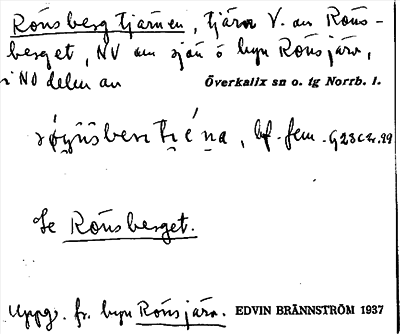 Rönsbergtjärnen, tjärn V. om Röns-
berget, NV om sjön o. byn Rönsjärv,
i NO delen av Överkalix sn o. tg Norrb. l.
bf. fem.
Se Rönsberget.
Uppg. fr. byn Rönsjärv. EDVIN BRÄNNSTRÖM 1937